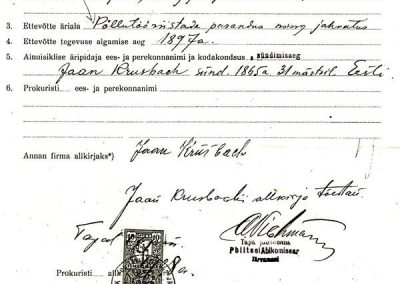 3. Ettevõtte äriala Põllutööriistade parandus ning jahvatus
4. Ettevõtte tegevuse algamise aeg 1897a.
5. Ainuisiklise äripidaja ees- ja perekonnanimi ja kodakondsus, sündimisaeg
Jaan Krusbach sünd. 1865a 31 märtsil Eesti
6. Prokuristi ees- ja perekonnanimi
Annan firma allkirjaks*) Jaan Krusbach
Jaan Krusbachi allkirja tõestan
Tapal
Tapa jaoskonna
Politsei Abikomissar
Järvamaal
Prokuristi